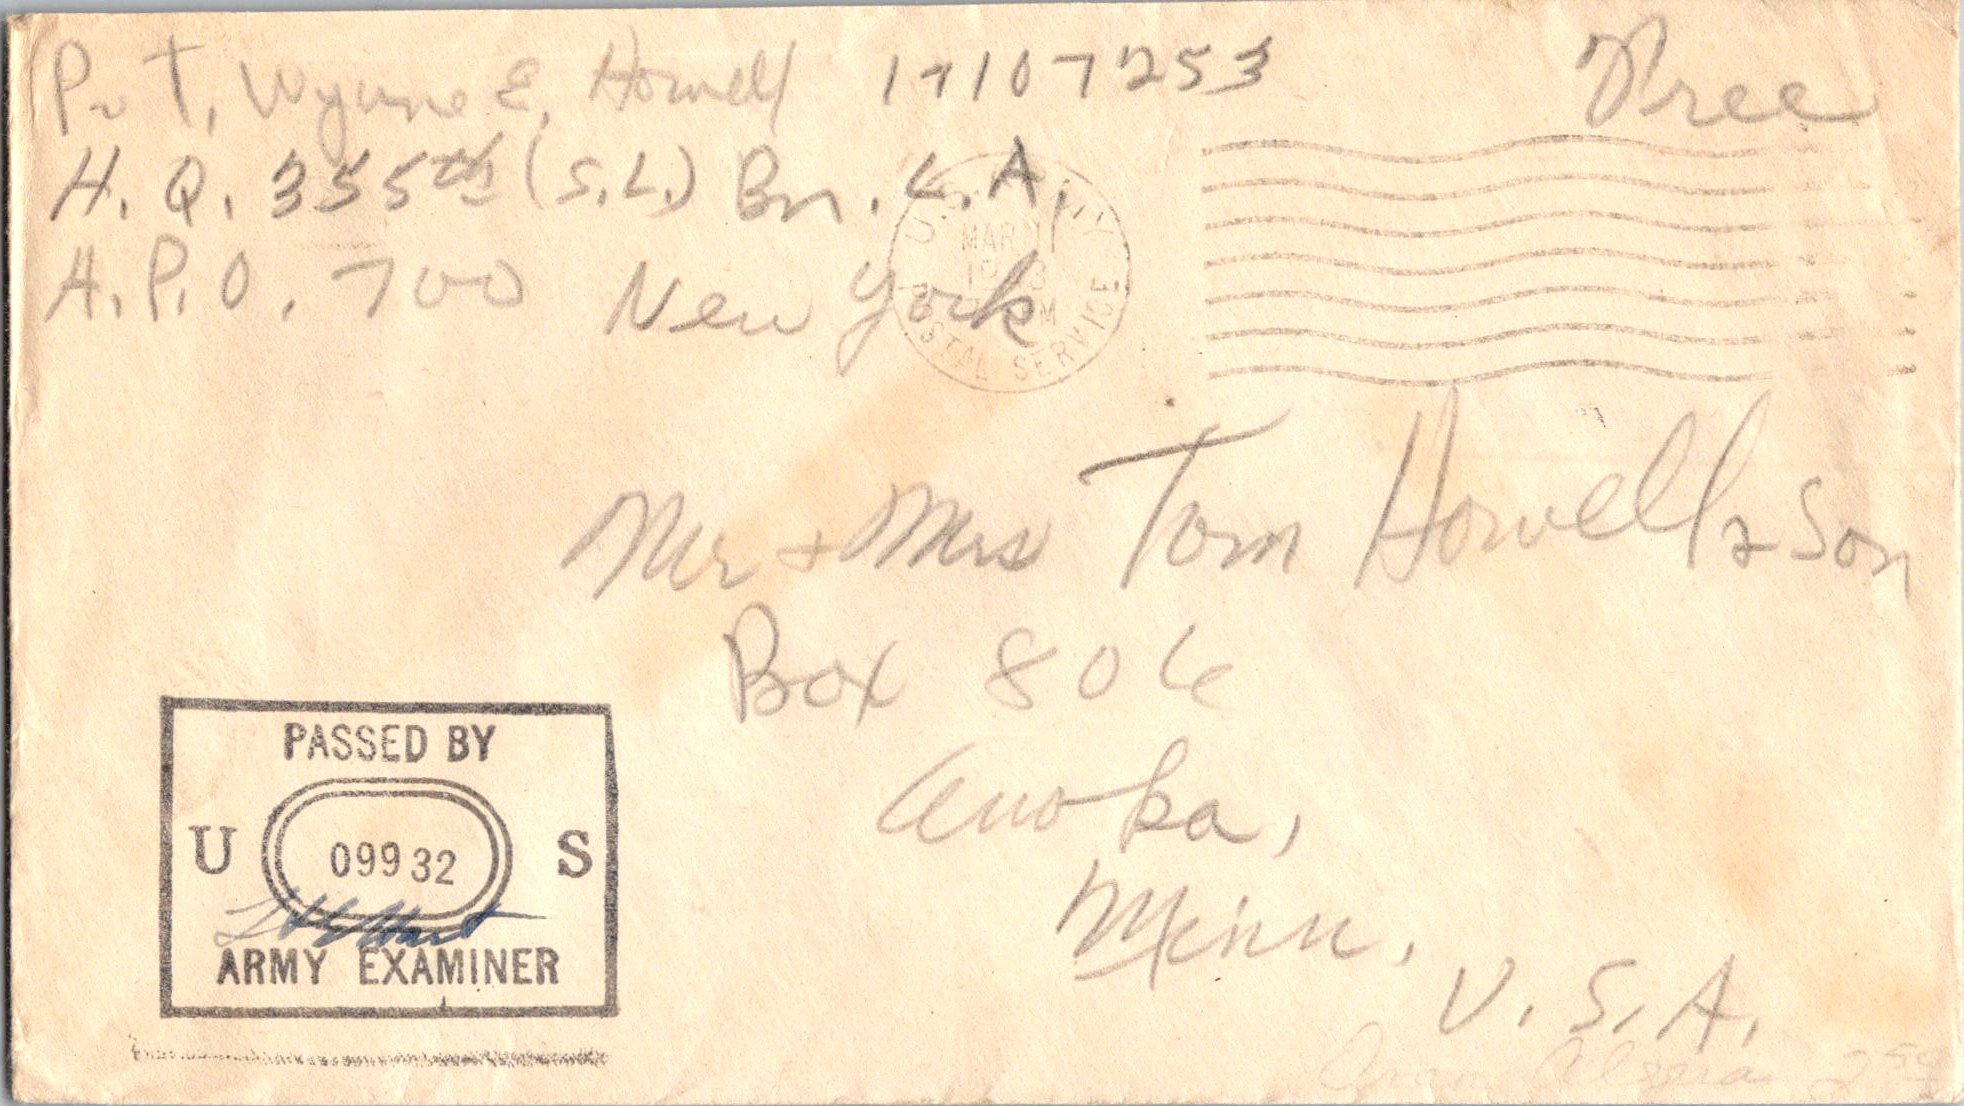 PvT. Wynne E. Howell 17107253
Free
H.Q. 355th (S.L.) Bn. C.A.
A.P.O. 700 New York
U.S. ARMY
MAR 11
1943
M
POSTAL SERVICE
Mr & Mrs Tom Howell & Son
Box 806
Anoka,
Minn.
U.S.A.
PASSED BY
U 09932 S
ARMY EXAMINER
Oran Algeria 2 50